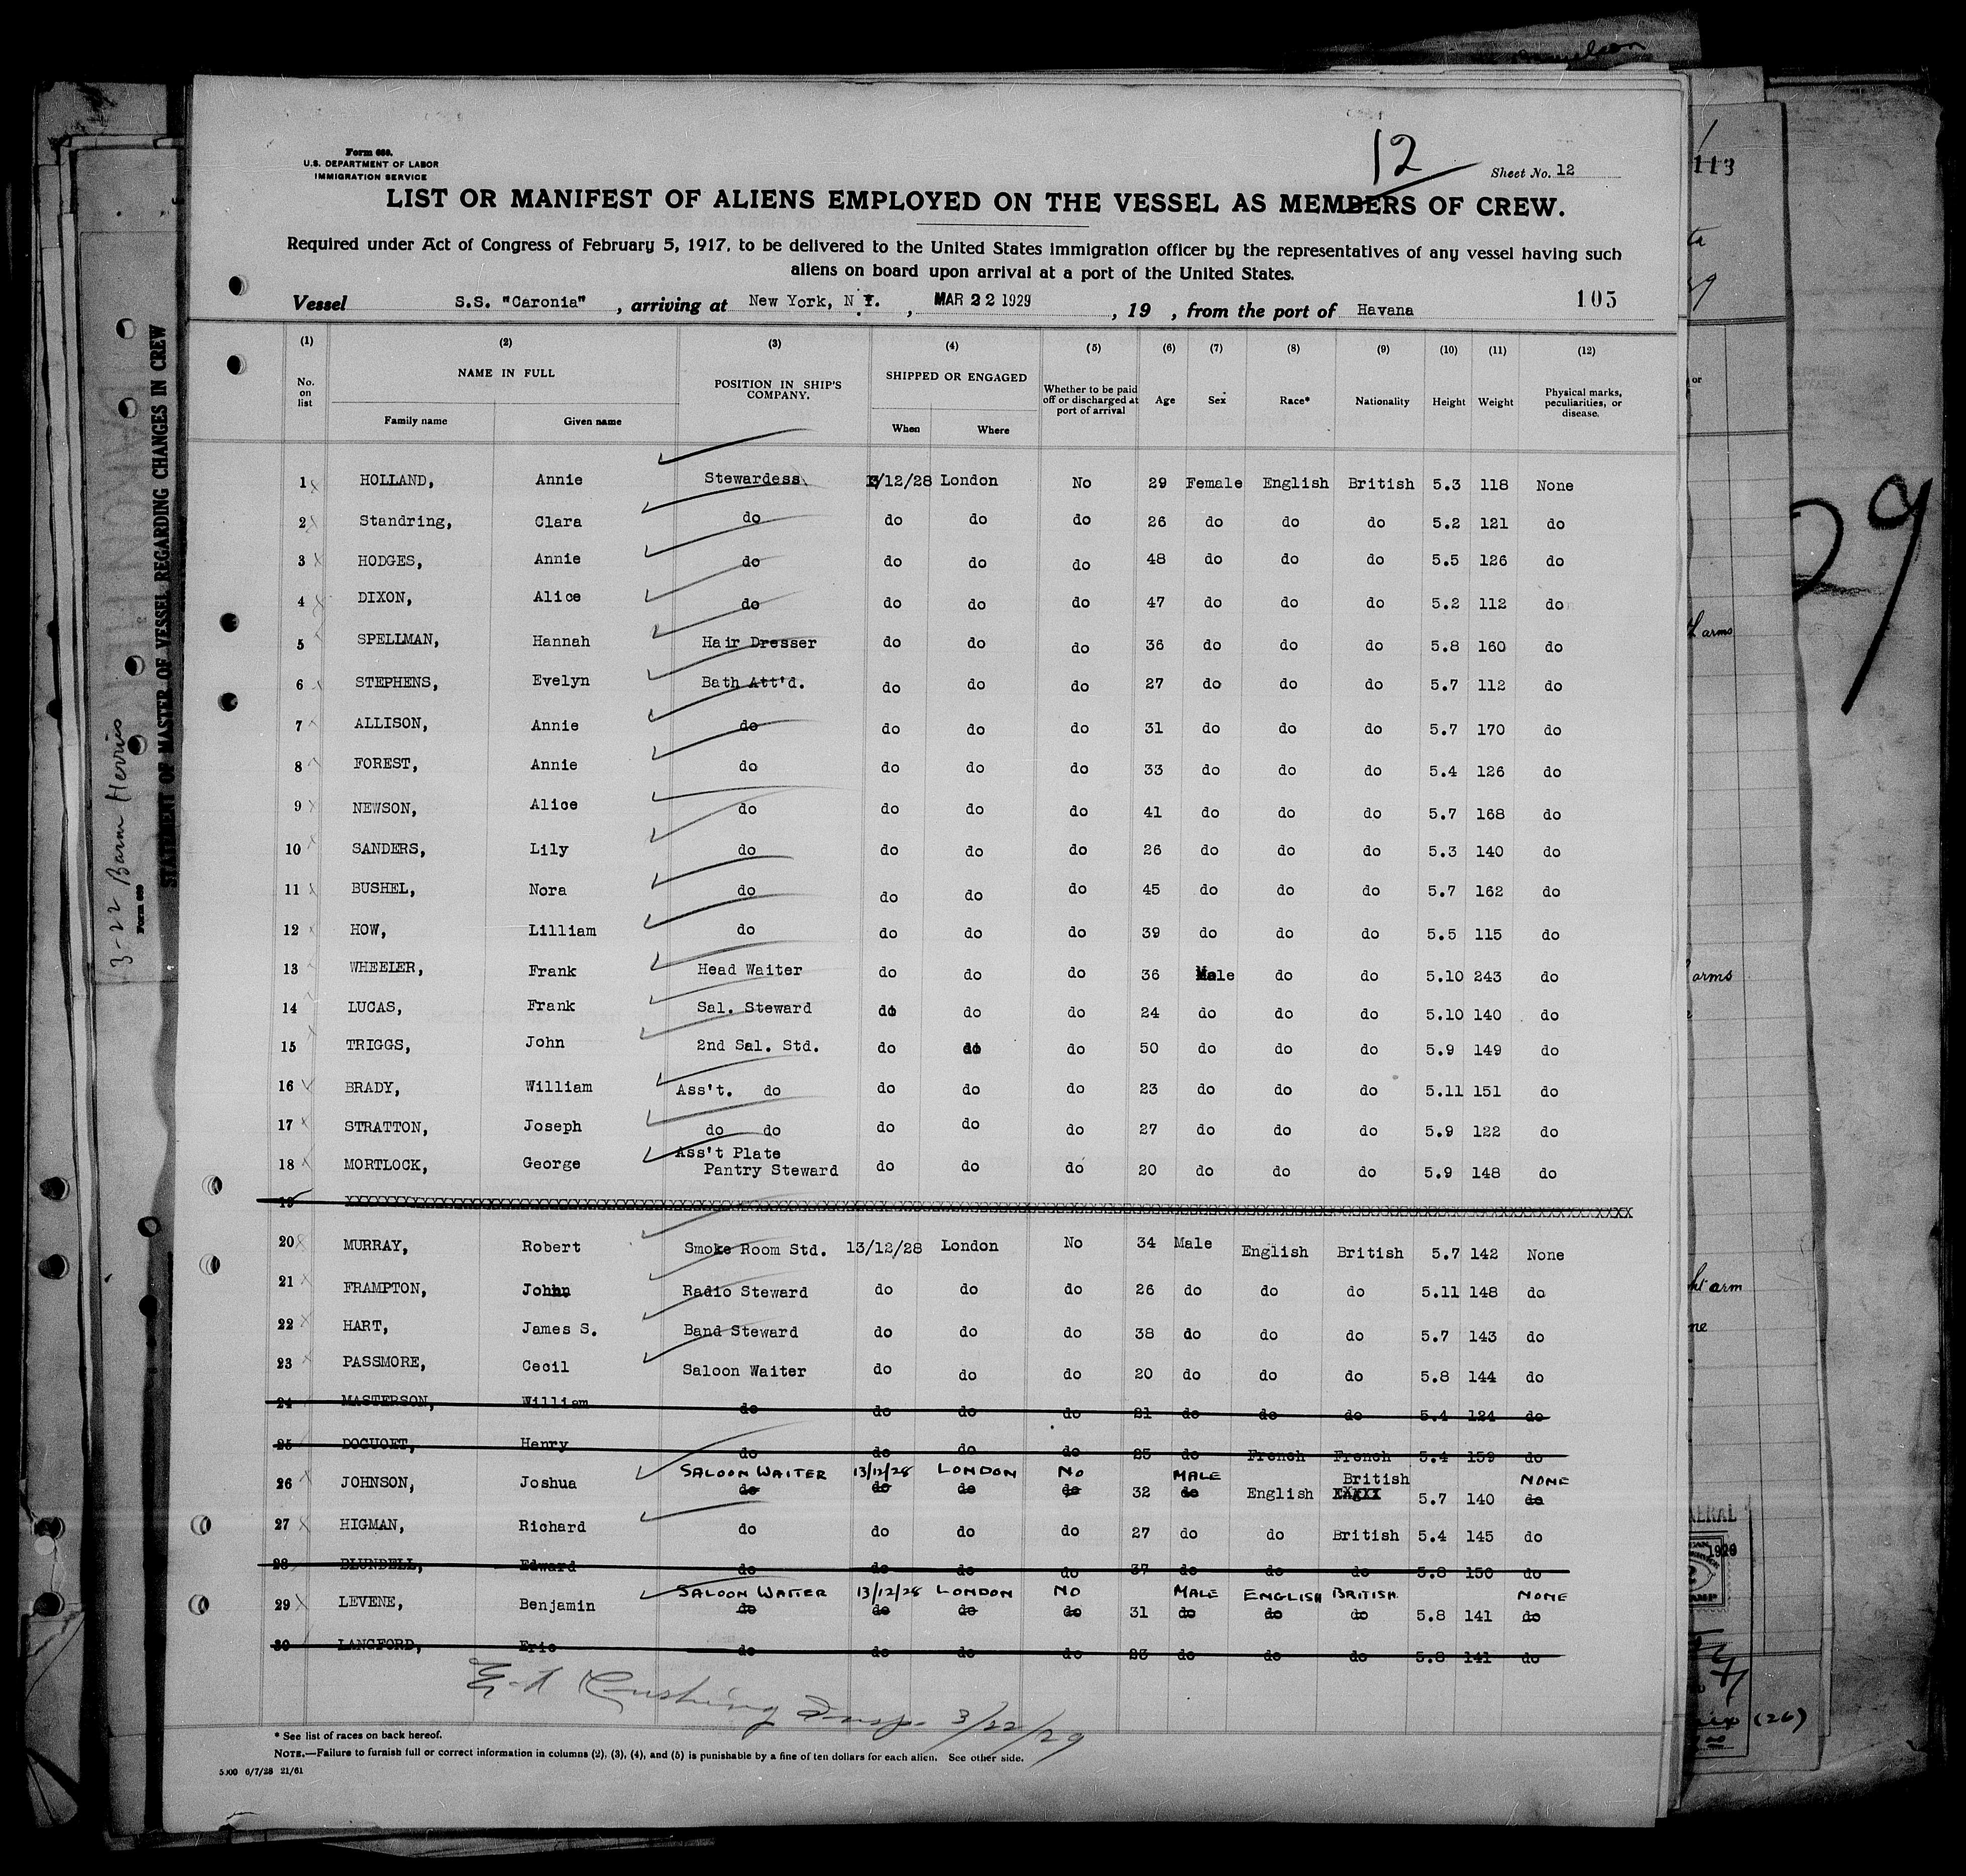 12
Sheet No. 12
U.S. DEPARTMENT OF LABOR
IMMIGRATION SERVICE
LIST OR MANIFEST OF ALIENS EMPLOYED ON THE VESSEL AS MEMBERS OF CREW.
Required under Act of Congress of February 5, 1917, to be delivered to the United States immigration officer by the representatives of any vessel having such
aliens on board upon arrival at a port of the United States.
105
Vessel S.S. "Caronia", arriving at New York, N Y., MAR 22 1929, 19 , from the port of Havana
(1) (2) (3) (4) (5) (6) (7) (8) (9) (10) (11) (12)
No. on list NAME IN FULL Family name Given name POSITION IN SHIP'S COMPANY. SHIPPED OR ENGAGED When Where Whether to be paid off or discharged at port of arrival Age Sex Race* Nationality Height Weight Physical marks, peculiarities, or disease.
1 HOLLAND, Annie Stewardess /12/28 London No 29 Female English British 5.3 118 None
2 Standring, Clara do do do do 26 do do do 5.2 121 do
3 HODGES, Annie do do do do 48 do do do 5.5 126 do
4 DIXON, Alice do do do do 47 do do do 5.2 112 do
5 SPELLMAN, Hannah Hair Dresser do do do 36 do do do 5.8 160 do
6 STEPHENS, Evelyn Bath Att'd. do do do 27 do do do 5.7 112 do
7 ALLISON, Annie do do do do 31 do do do 5.7 170 do
8 FOREST, Annie do do do do 33 do do do 5.4 126 do
9 NEWSON, Alice do do do do 41 do do do 5.7 168 do
10 SANDERS, Lily do do do do 26 do do do 5.3 140 do
11 BUSHEL, Nora do do do do 45 do do do 5.7 162 do
12 HOW, Lilliam do do do do 39 do do do 5.5 115 do
13 WHEELER, Frank Head Waiter do do do 36 Male do do 5.10 243 do
14 LUCAS, Frank Sal. Steward do do do 24 do do do 5.10 140 do
15 TRIGGS, John 2nd Sal. Std. do do do 50 do do do 5.9 149 do
16 BRADY, William Ass't. do do do do 23 do do do 5.11 151 do
17 STRATTON, Joseph do do do do do 27 do do do 5.9 122 do
18 MORTLOCK, George Ass't Plate Pantry Steward do do do 20 do do do 5.9 148 do
19
20 MURRAY, Robert Smoke Room Std. 13/12/28 London No 34 Male English British 5.7 142 None
21 FRAMPTON, John Radio Steward do do do 26 do do do 5.11 148 do
22 HART, James S. Band Steward do do do 38 do do do 5.7 143 do
23 PASSMORE, Cecil Saloon Waiter do do do 20 do do do 5.8 144 do
24 MASTERSON, William do do do do 21 do do do 5.4 124 do
25 DOCUOET, Henry do do do do 25 do French French 5.4 159 do
SALOON WAITER 13/12/28 LONDON NO MALE British NONE
26 JOHNSON, Joshua do do do do 32 do English 5.7 140 do
27 HIGMAN, Richard do do do do 27 do do British 5.4 145 do
28 BLUNDELL, Edward do do do do 37 do do do 5.8 150 do
SALOON WAITER 13/12/28 LONDON NO MALE ENGLISH BRITISH NONE
29 LEVENE, Benjamin do do do do 31 do do do 5.8 141 do
30 LANGFORD, Eric do do do do 23 do do do 5.8 141 do
Cushing Insp. 3/22/29
* See list of races on back hereof.
NOTE.—Failure to furnish full or correct information in columns (2), (3), (4), and (5) is punishable by a fine of ten dollars for each alien. See other side.
6/7/28 21/61
STATEMENT OF MASTER OF VESSEL REGARDING CHANGES IN CREW
3-22
113
29
arms
arms
arm
(26)